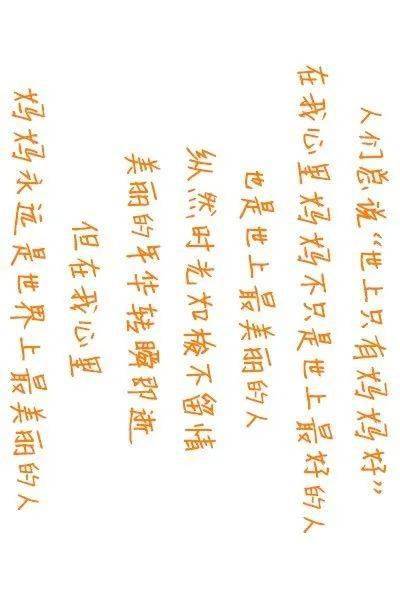 人们总说“世上只有妈妈好”
在我心里妈妈不只是世上最好的人
也是世上最美丽的人
纵然时光如梭不留情
美丽的年华转瞬即逝
但在我心里
妈妈永远是世界上最美丽的人